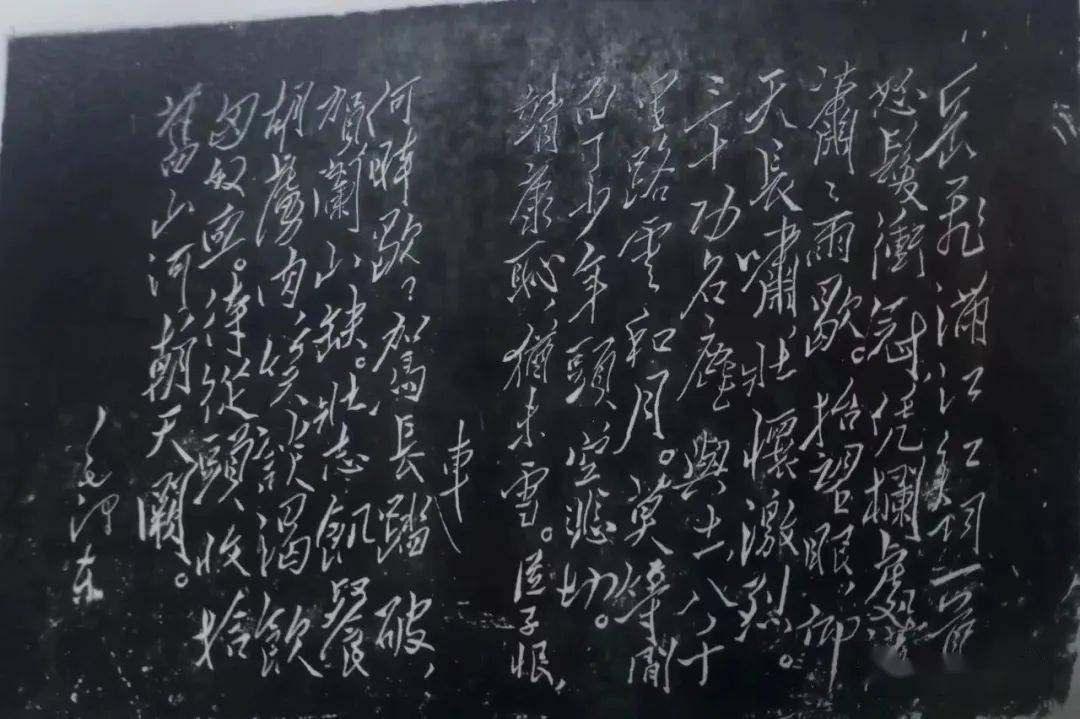 岳飛滿江紅詞一首
怒髮衝冠、凭欄處、
瀟〻雨歇。抬望眼、仰
天長嘯、壯懷激烈。
三十功名塵與土、八千
里路雲和月。莫等閒
白了少年頭、空悲切。
靖康恥、猶未雪。臣子恨，
車
何時歇？駕長踏破，
賀蘭山缺。壯志飢餐
胡虜肉、笑談渴飲
匈奴血。待從頭、收拾
舊山河、朝天闕。
毛澤東